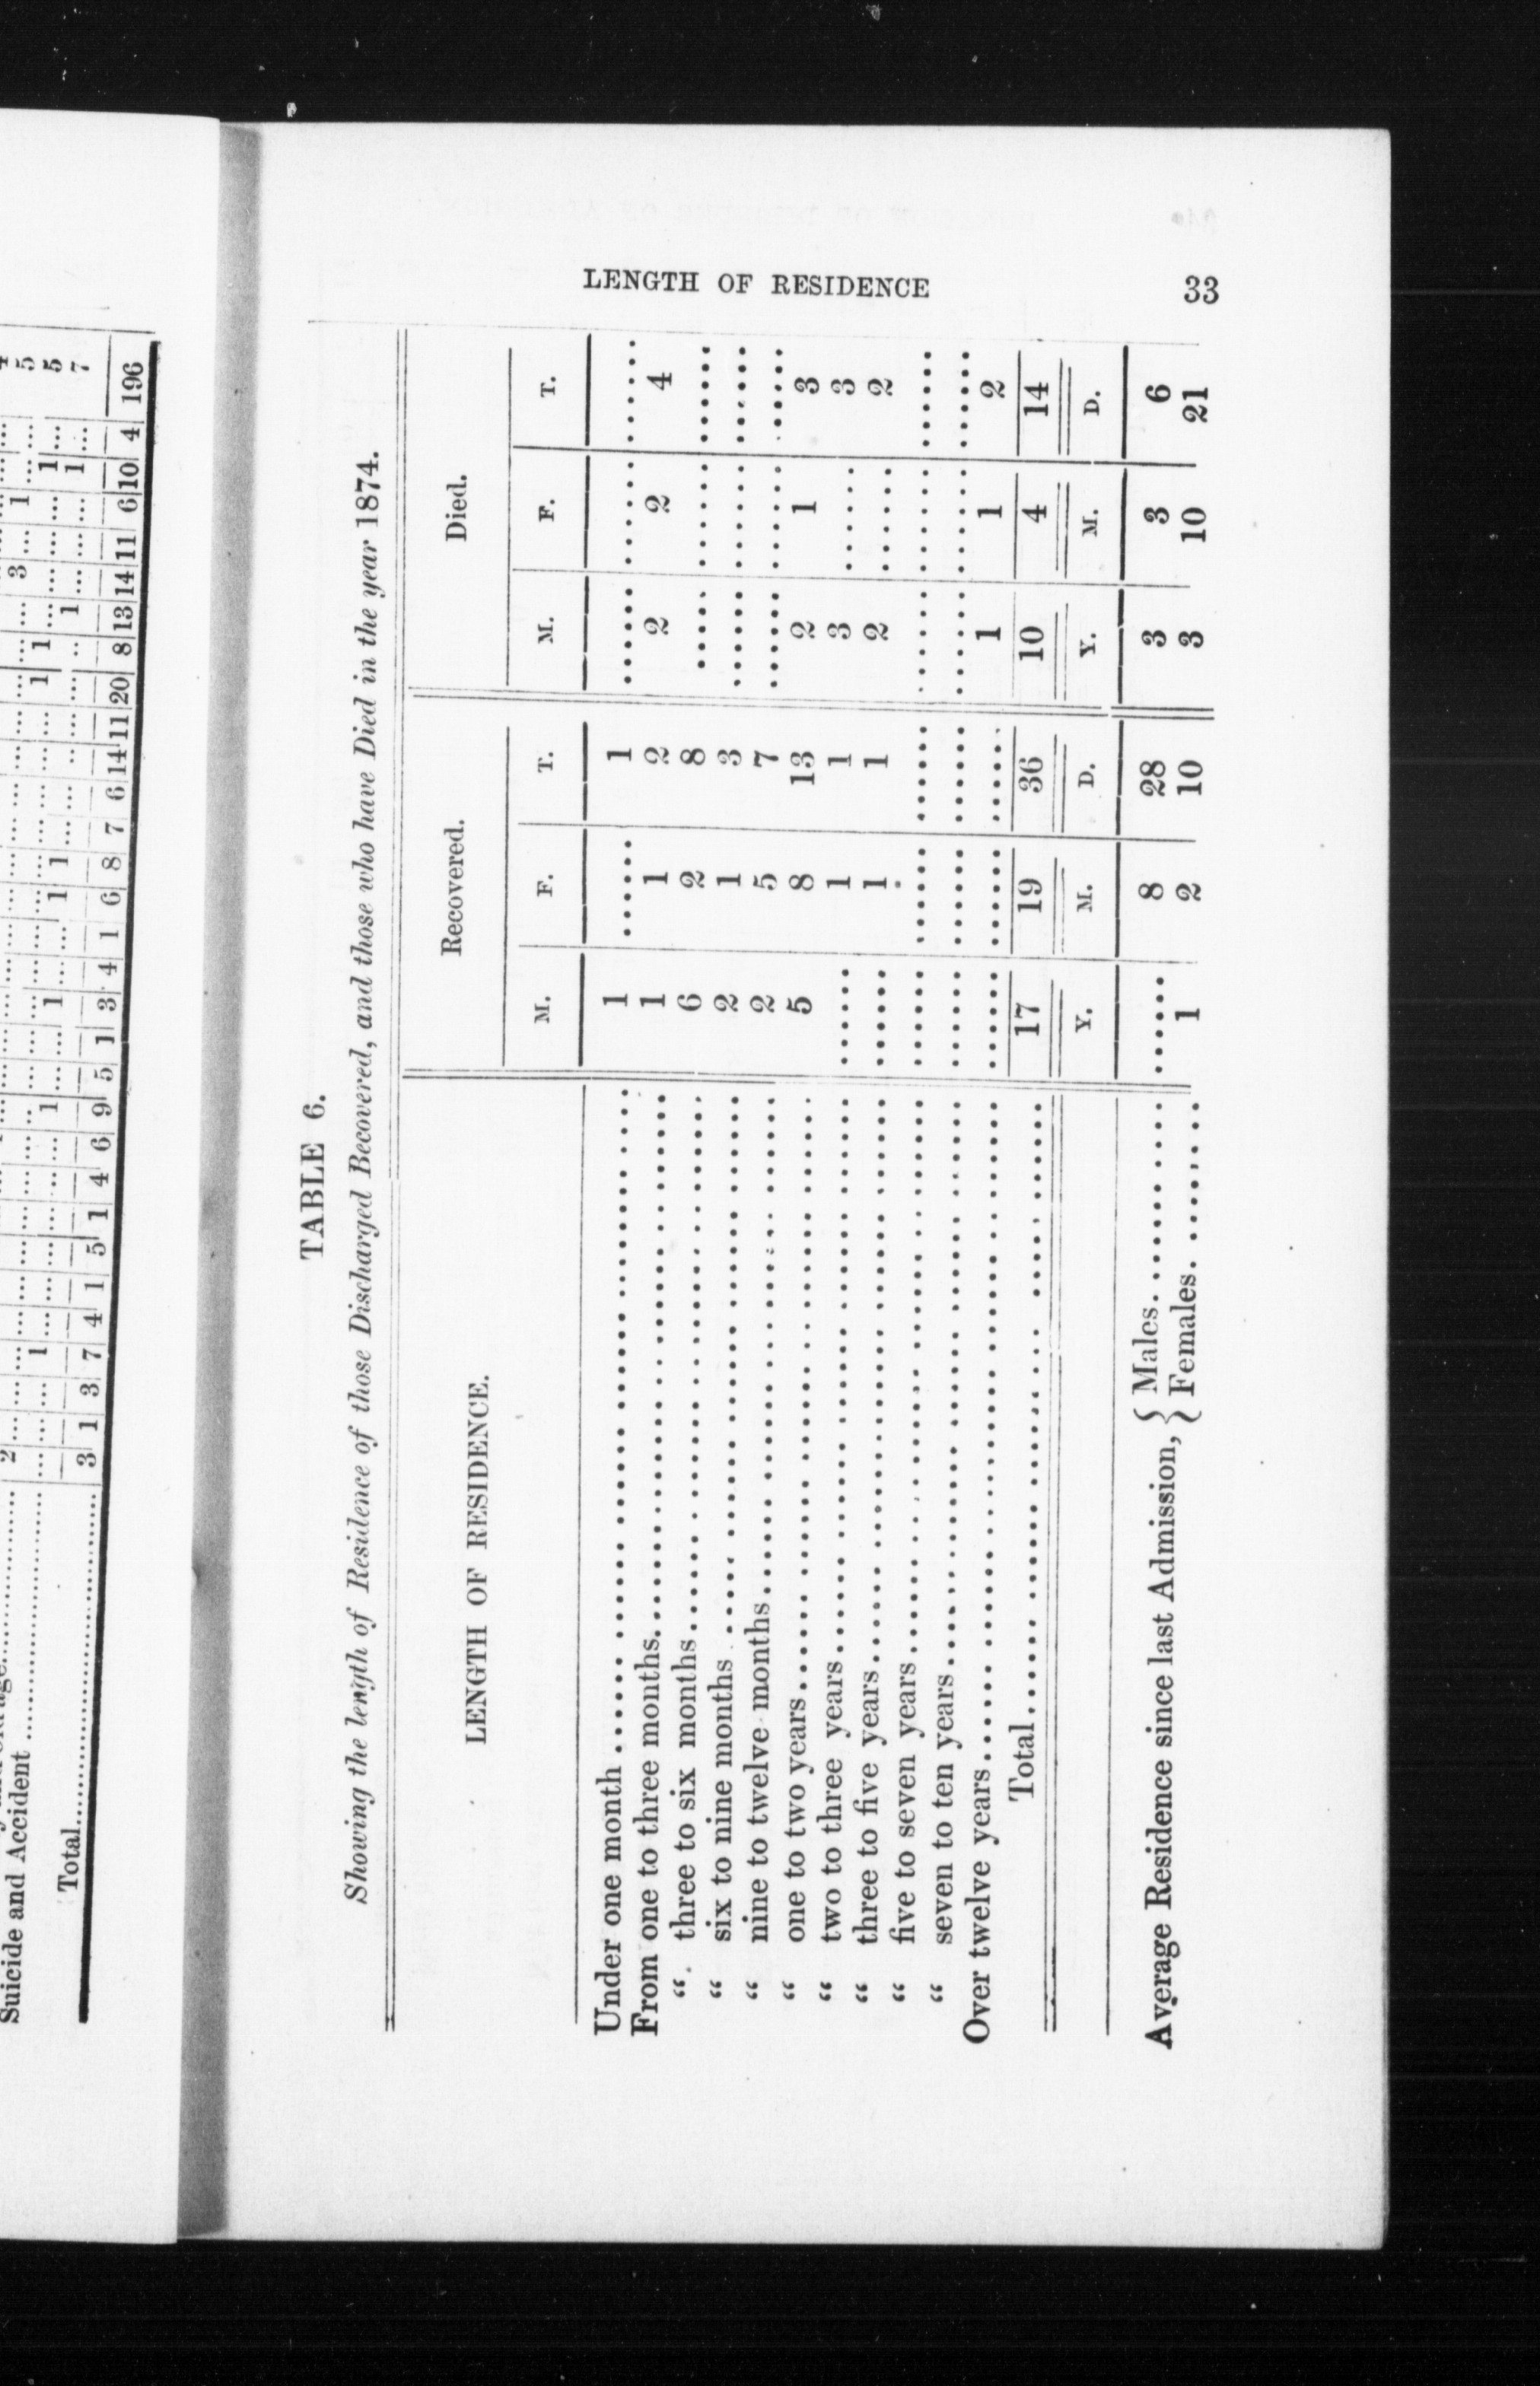 LENGTH OF RESIDENCE 33
TABLE 6.
Showing the length of Residence of those Discharged Recovered, and those who have Died in the year 1874.
LENGTH OF RESIDENCE. Recovered. Died.
M. F. T. M. F. T.
Under one month ...... 1 ...... 1 ...... ...... ......
From one to three months...... 1 1 2 2 2 4
“ three to six months...... 6 2 8 ...... ...... ......
“ six to nine months ...... 2 1 3 ...... ...... ......
“ nine to twelve months ...... 2 5 7 ...... ...... ......
“ one to two years...... 5 8 13 2 1 3
“ two to three years...... ...... 1 1 3 ...... 3
“ three to five years...... ...... 1 1 2 ...... 2
“ five to seven years...... ...... ...... ...... ...... ...... ......
“ seven to ten years...... ...... ...... ...... ...... ...... ......
Over twelve years...... ...... ...... ...... 1 1 2
Total...... 17 19 36 10 4 14
Y. M. D. Y. M. D.
Average Residence since last Admission, { Males...... ...... 8 28 3 3 6
{ Females...... 1 2 10 3 10 21
Suicide and Accident ......
Total...... 3 1 3 7 4 1 5 1 4 6 9 5 1 3 4 1 6 8 7 6 14 11 20 8 13 14 11 6 10 4 196